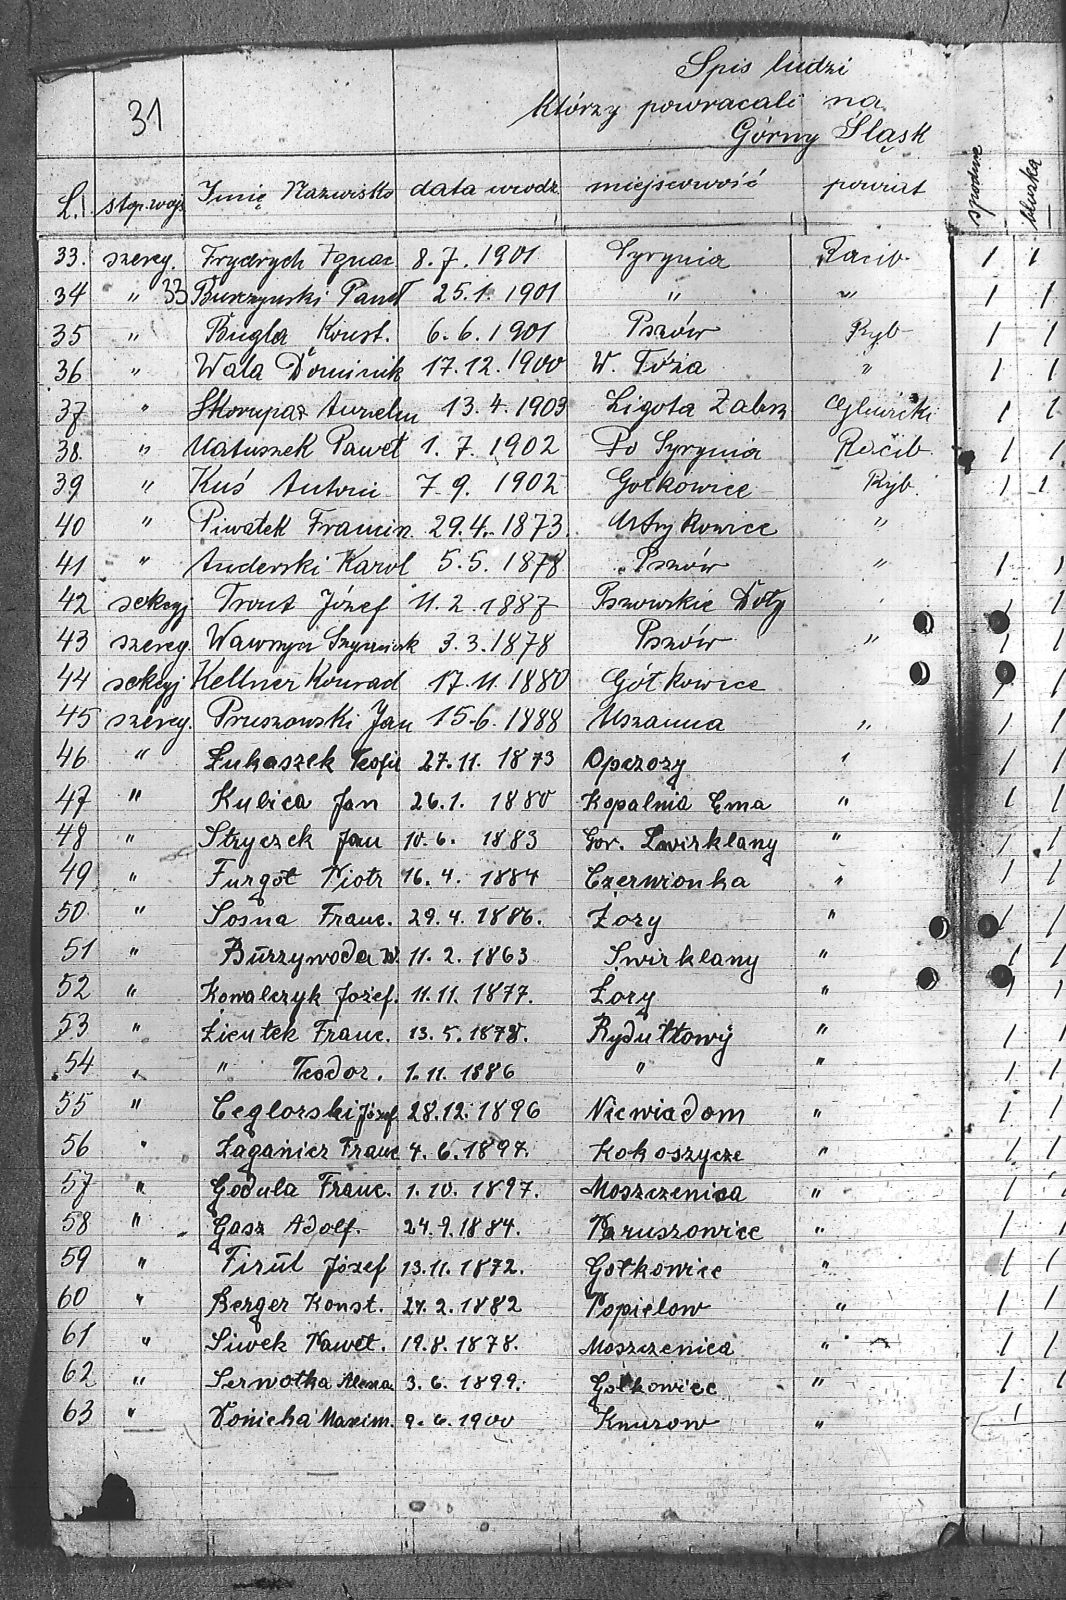 Spis ludzi
31
Którzy powracali na
Górny Śląsk
L. stop. wojs. Imię Nazwisko data urodz. miejscowość powiat spodnie bluzka
33. szereg. Frydrych Ignac 8.7.1901 Syrynia Racib. 1 1
34 " 33 Burczynski Paweł 25.1.1901 " " 1 1
35 " Bugla Konst. 6.6.1901 Pszów Ryb 1 1
36 " Wala Dominik 17.12.1900 W. " 1 1
37 " 13.4.1903 Ligota Zabrz Gliwicki 1 1
38. " Matuszek Paweł 1.7.1902 Po Syrynia Racib. 1 1
39 " Kuś Antoni 7.9.1902 Gołkowice Ryb. 1 1
40 " Piwatek 29.4.1873. "
41 " Anderski Karol 5.5.1878 Pszów " 1 1
42 sekcyj Trout Józef 11.2.1887 Pszowskie Doły 1 1
43 szereg. Wawrzyn 3.3.1878 Pszów " 1 1
44 sekcyj Kellner Konrad 17.11.1880 Gółkowice 1 1
45 szereg. Pruszowski Jan 15.6.1888 Mszanna " 1 1
46 " Łukaszek Teofil 27.11.1873 " 1 1
47 " Kubica Jan 26.1.1880 Kopalnia Ema " 1 1
48 " Stryczek Jan 10.6.1883 Gor. " 1 1
49 " Furgoł Piotr 16.4.1884 Czerwionka " 1 1
50 " Sosna Franc. 29.4.1886. Żory " 1 1
51 " Burzywoda W. 11.2.1863 Swirklany " 1 1
52 " Kowalczyk Józef. 11.11.1877. Żory " 1 1
53 " Zientek Franc. 13.5.1878. Rydułtowy " 1 1
54 " " Teodor. 1.11.1886 " " 1 1
55 " Ceglorski Józef 28.12.1896 Niewiadom " 1 1
56 " Franc 4.6.1897. Kokoszycze " 1 1
57 " Godula Franc. 1.10.1897. Moszczenica " 1 1
58 " Gasz Adolf. 24.9.1884. Paruszowice " 1 1
59 " Firut Józef 13.11.1872. Gołkowice " 1 1
60 " Berger Konst. 27.2.1882 Popielow " 1 1
61 " Siwek Paweł. 19.8.1878. Moszczenica " 1 1
62 " Serwotka 3.6.1899. Gołkowice " 1 1
63 " Maxim. 9.6.1900 Knurow " 1